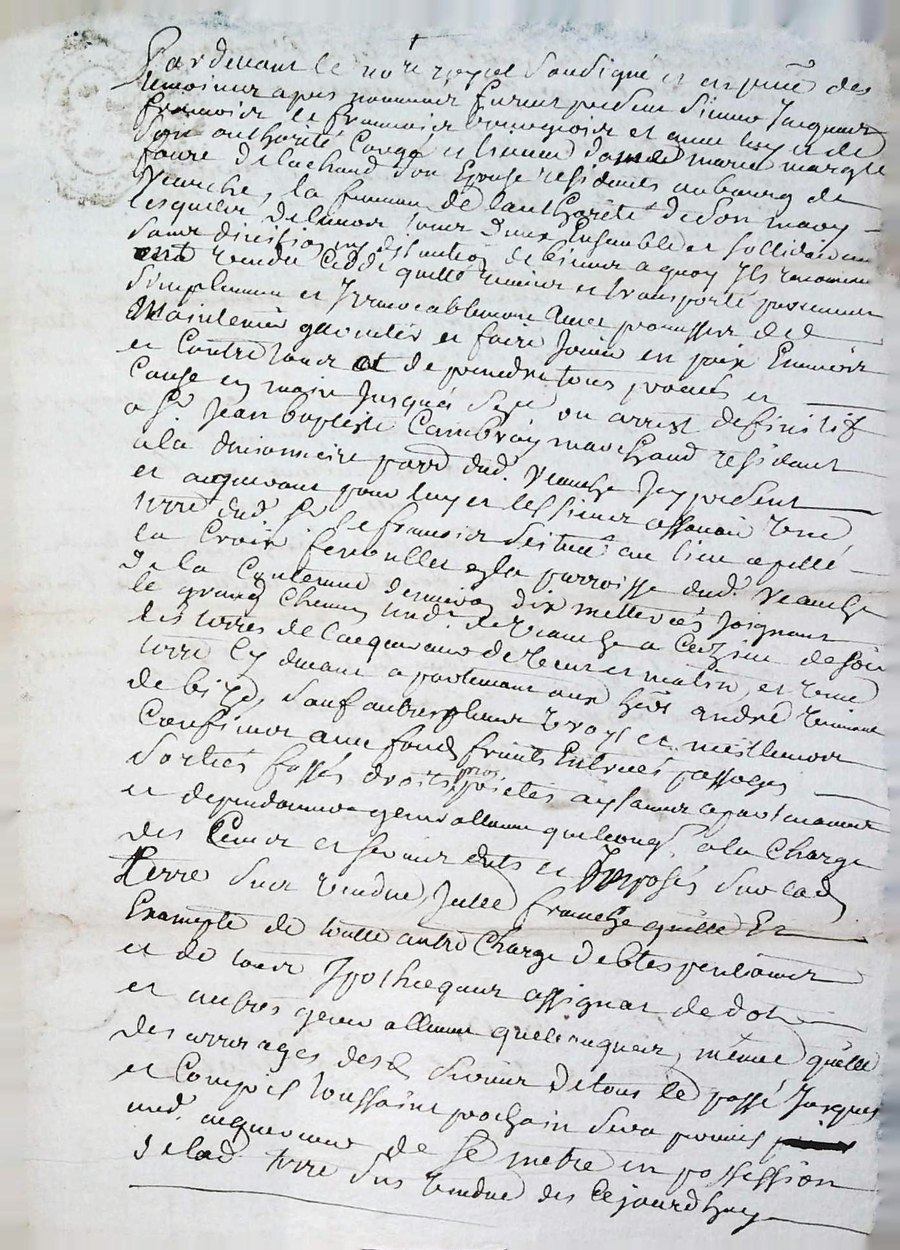 Par devant le not.re royal soussigné et en pnce des
temoins apres nommés furent present sieur Jacques
francois le francois bourgeois et avec luy et de
son authorité congé et licence dame marie margte
faure delachaud son Epouse residents au bourg de
veauche, la femme de lauthorité de son mary
lesquels de leurs Ensemble et sollidairement
sans division ny distinction de biens a quoy Ils renoncent
ont vendu ceddé quitté remis et transporté purement
simplement et Irrevocablement avec promesse de
Maintenir garentir et faire Jouir en paix Envers
et Contre tous et de prendre tous procés et
Cause en main Jusques a sçe ou arrest definitif
a Sr. Jean baptiste Cambray marchand residant
a la parr.e dud. veauche Icy present
et acquerant pour luy et les siens assavoir Une
terre dud. Sr. le francois scituée au lieu apellé
la Croix fenouillet parroisse dud. veauche
de la Contenue denviron dix metterées Joignant
le grand Chemin tend.t de veauche a de soir
les terres de lacquereur de vent et matin, et Une
terre cy devant apartenant aux hers andré
de bize, sauf autres plus vrays et meilleurs
Confins avec fonds fruits Entrées passages
sorties fossés droits proprietés aysances apartenances
et dependances generallement quelconqs. a la Charge
des Cens et servis deüs et Imposés sur lad.
terre sus vendue, Icelle franche quitte Et
Exempte de toutte autre Charge debtes pentions
et de tous Ipotheques assignat de dot
et autres generallement quelconques, même quitte
des arrerages desd. servis de tous le passé Jusques
et Compris toussaint prochain sera permis
aud. acquereur de se metre en possession
de lad. terre sus vendue des cejourdhuy